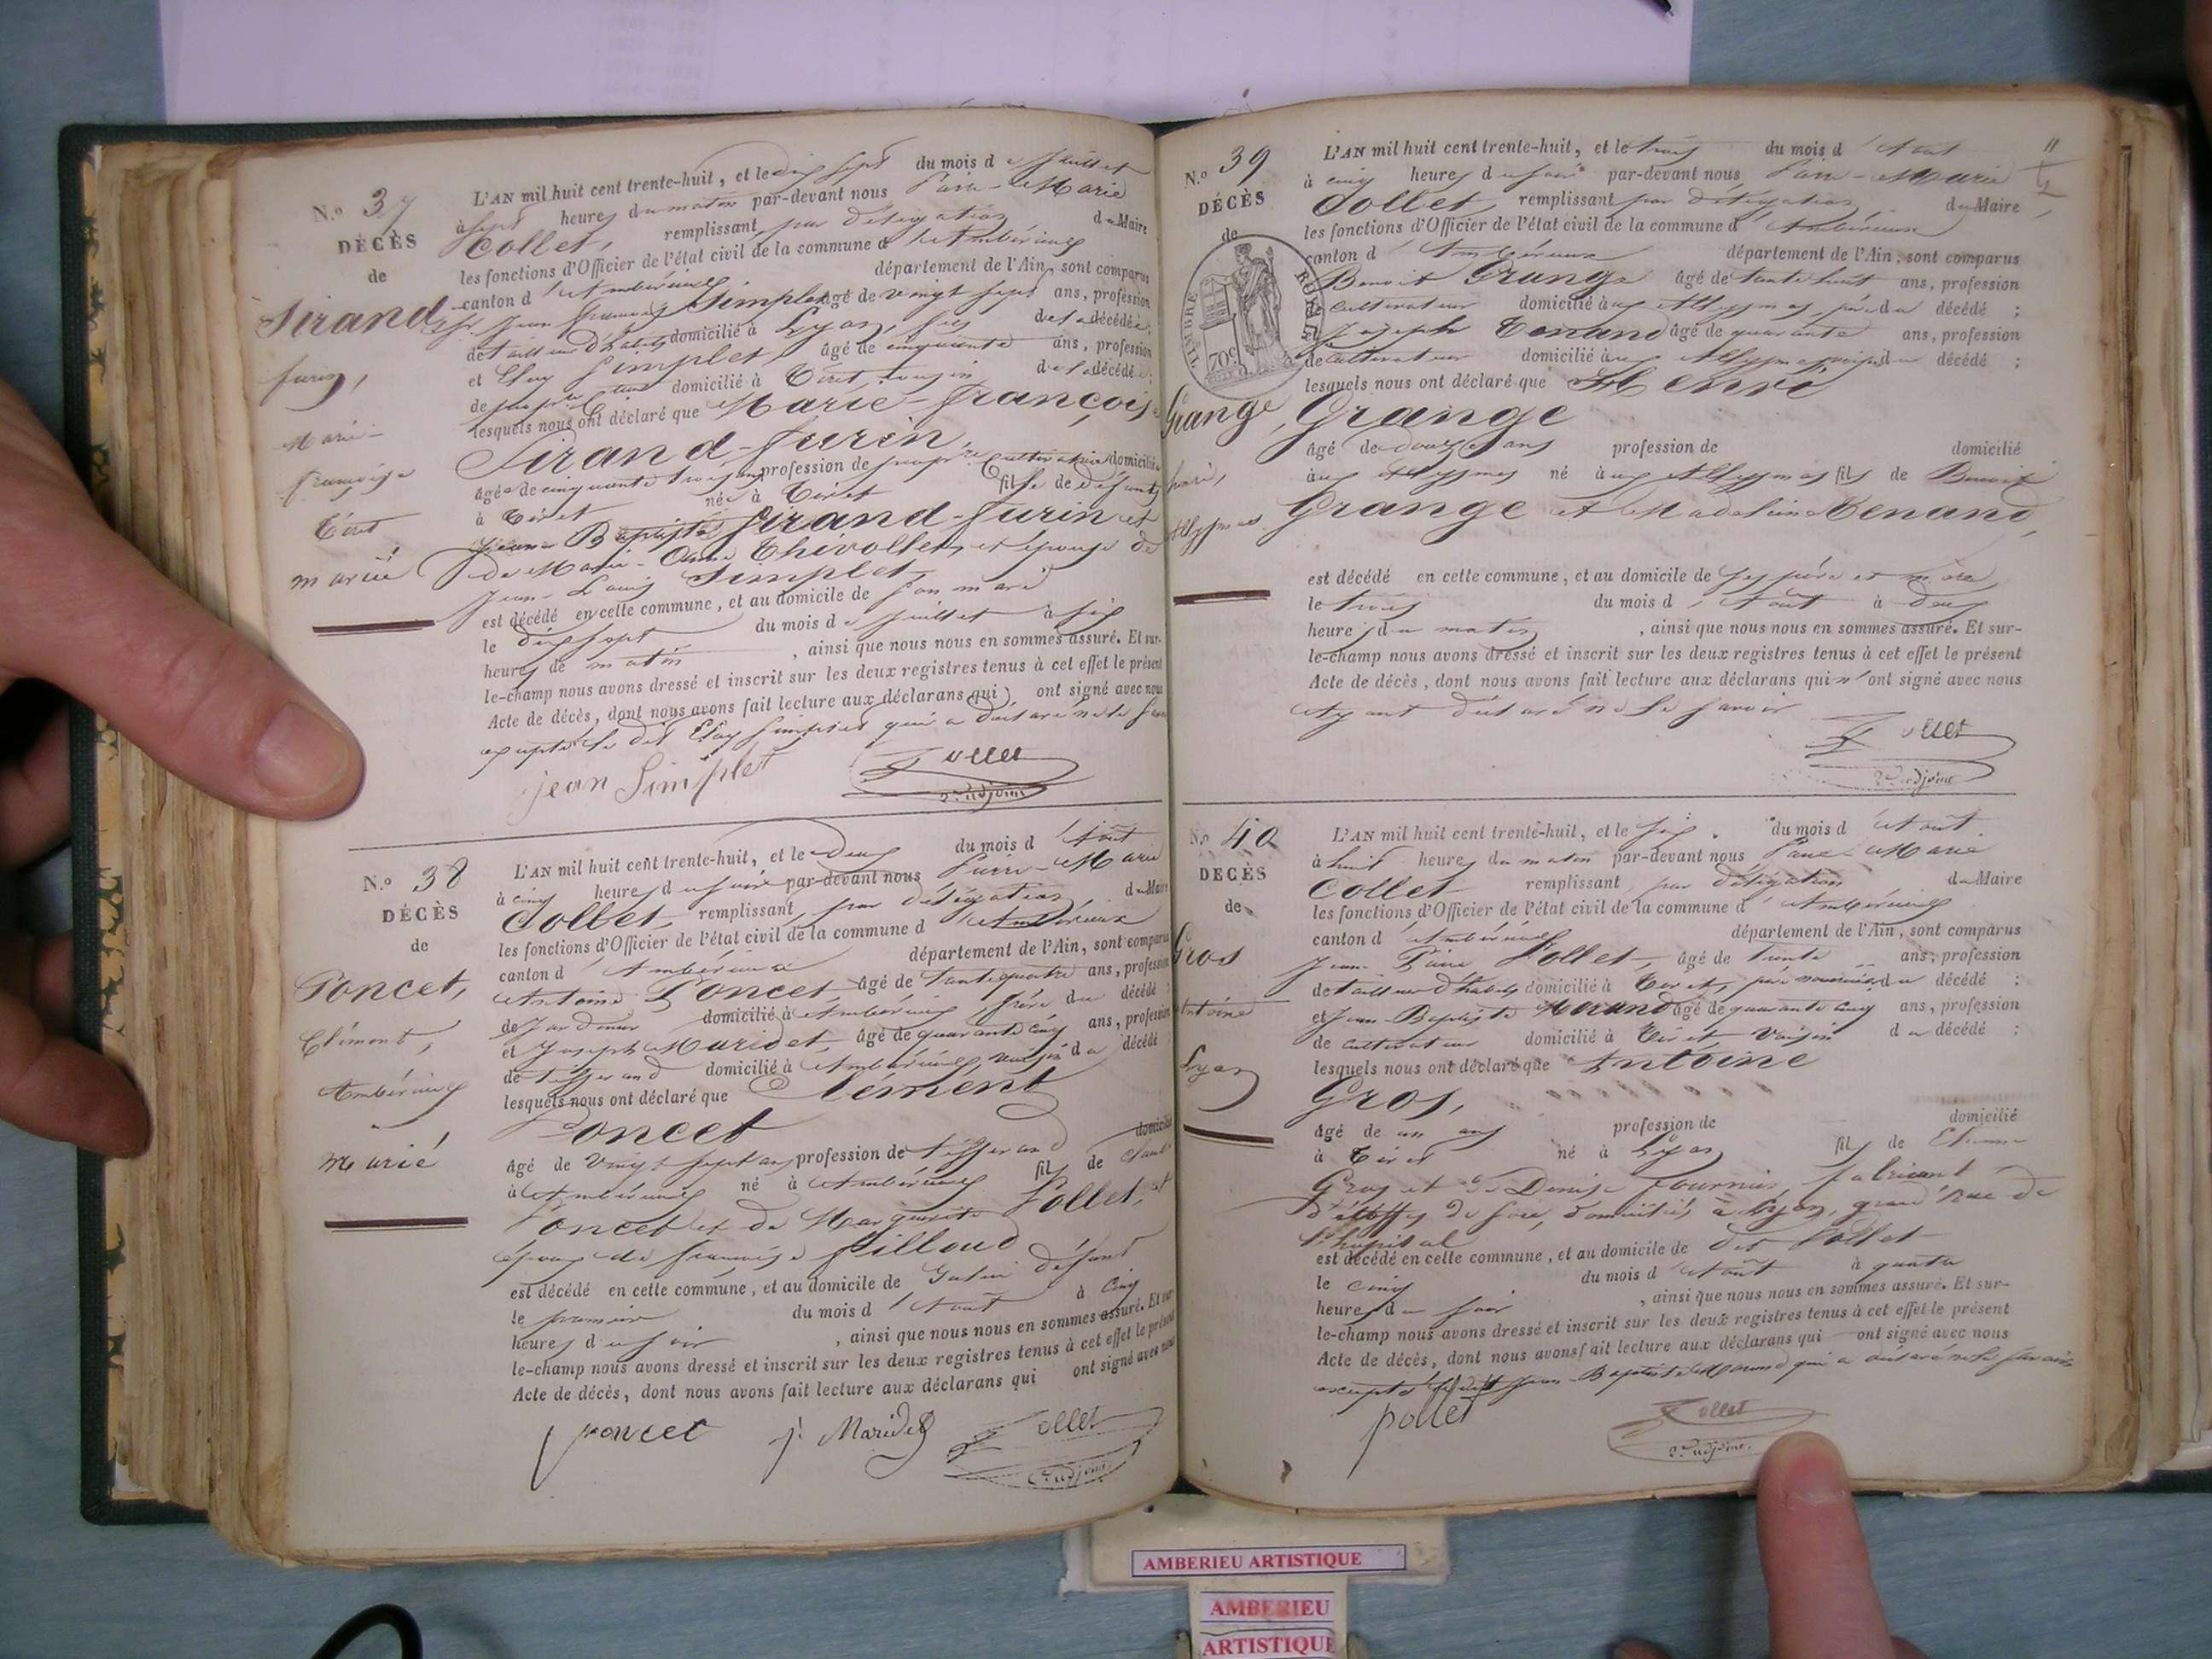 N.º 37
DÉCÈS
de
Sirand
furin,
Marie-
françoise
Tiret
marié
L'AN mil huit cent trente-huit, et le dix sept du mois de Juillet
à sept heures du matin par-devant nous Pierre-Marie
Collet, remplissant par délégation du Maire
les fonctions d'Officier de l'état civil de la commune d'Ambérieux
canton d'Ambérieux département de l'Ain, sont comparus
Jean françois Simplet âgé de vingt sept ans, profession
de tailleur d'habits domicilié à Lyon, fils de la décédée;
et Eloy Simplet âgé de cinquante ans, profession
de domicilié à Tiret, cousin de la décédée;
lesquels nous ont déclaré que Marie-françoise
Sirand-furin,
âgée de cinquante trois ans profession de propre Cultivatrice domiciliée
à Tiret née à Tiret fille de défunts
Jean Baptiste Sirand-furin et
de Marie-Anne Thivollet, et épouse de
Jean-Louis Simplet
est décédé en cette commune, et au domicile de son mari
le dix sept du mois de Juillet à six
heures de matin, ainsi que nous nous en sommes assuré. Et sur-
le-champ nous avons dressé et inscrit sur les deux registres tenus à cet effet le présent
Acte de décès, dont nous avons fait lecture aux déclarans qui ont signé avec nous
excepté le dit Eloy Simplet qui a déclaré ne le savoir
jean Simplet
Collet
2e adjoint
N.º 38
DÉCÈS
de
Poncet,
Clément,
Ambérieux
marié
L'AN mil huit cent trente-huit, et le deux du mois d'Août
à cinq heures du soir par-devant nous Pierre-Marie
Collet, remplissant par délégation, du Maire
les fonctions d'Officier de l'état civil de la commune d'Ambérieux
canton d'Ambérieux département de l'Ain, sont comparus
Antoine Poncet âgé de trente quatre ans, profession
de Jardinier domicilié à Ambérieux frère du décédé;
et Joseph Maridet, âgé de quarante cinq ans, profession
de tisserand domicilié à Ambérieux, voisin du décédé;
lesquels nous ont déclaré que Clément
Poncet
âgé de vingt sept ans profession de tisserand domicilié
à Ambérieux né à Ambérieux fils de
Poncet et de Marguerite Pollet, et
époux de françoise Pilloud
est décédé en cette commune, et au domicile de défunt
le premier du mois d'Août à cinq
heures du soir, ainsi que nous nous en sommes assuré. Et sur-
le-champ nous avons dressé et inscrit sur les deux registres tenus à cet effet le présent
Acte de décès, dont nous avons fait lecture aux déclarans qui ont signé avec nous
poncet j. Maridet Collet
2e adjoint
N.º 39
DÉCÈS
de
TIMBRE ROYAL
70c
Grange,
henri,
Allymes
L'AN mil huit cent trente-huit, et le trois du mois d'Aout
à cinq heures du soir par-devant nous Pierre-Marie
Collet, remplissant par délégation, du Maire
les fonctions d'Officier de l'état civil de la commune d'Ambérieux
canton d'Ambérieux département de l'Ain, sont comparus
Benoit Grange âgé de trente huit ans, profession
cultivateur domicilié aux Allymes, père du décédé;
et Joseph Tenand âgé de quarante ans, profession
de cultivateur domicilié aux Allymes du décédé;
lesquels nous ont déclaré que Henri
Grange
âgé de douze ans profession de domicilié
aux Allymes né aux Allymes fils de Benoit
Grange et Madeleine Tenand,
est décédé en cette commune, et au domicile de ses père et mère
le trois du mois d'Août à deux
heures du matin, ainsi que nous nous en sommes assuré. Et sur-
le-champ nous avons dressé et inscrit sur les deux registres tenus à cet effet le présent
Acte de décès, dont nous avons fait lecture aux déclarans qui n'ont signé avec nous
ayant déclaré ne le savoir
Collet
2e adjoint
N.º 40
DÉCÈS
de
Gros
Antoine
Lyon
L'AN mil huit cent trente-huit, et le six du mois d'Août.
à huit heures du matin par-devant nous Pierre-Marie
Collet remplissant par délégation du Maire
les fonctions d'Officier de l'état civil de la commune d'Ambérieux
canton d'Ambérieux département de l'Ain, sont comparus
Jean-Pierre Pollet, âgé de trente ans, profession
de tailleur d'habits domicilié à Tiret, père nourricier du décédé;
et Jean-Baptiste Morand âgé de quarante cinq ans, profession
de cultivateur domicilié à Tiret voisin du décédé;
lesquels nous ont déclaré que Antoine
Gros,
âgé de un ans profession de domicilié
à Tiret né à Lyon fils de Etienne
Gros et de Denise fournier, fabricant
d'étoffes de soie, domiciliés à Lyon, grand'Rue de
l'hopital
est décédé en cette commune, et au domicile de dit Pollet
le cinq du mois d'Août à quatre
heures du soir, ainsi que nous nous en sommes assuré. Et sur-
le-champ nous avons dressé et inscrit sur les deux registres tenus à cet effet le présent
Acte de décès, dont nous avons fait lecture aux déclarans qui ont signé avec nous
excepté le dit Jean-Baptiste Morand qui a déclaré ne le savoir
pollet
Collet
2e adjoint.
AMBERIEU ARTISTIQUE
AMBERIEU
ARTISTIQUE